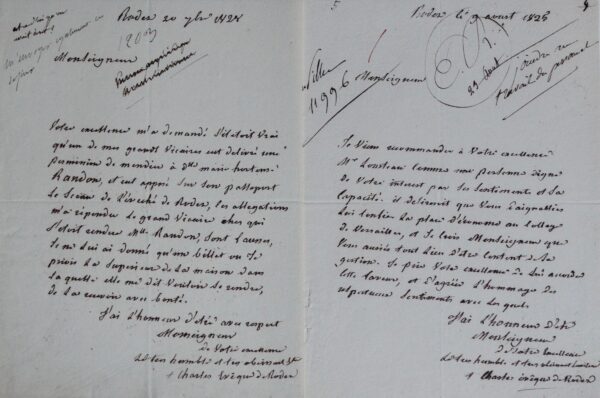 Rodez 20 7bre 1828
Monseigneur
Votre excellence m'a demandé s'il étoit vrai
qu'un de mes grands vicaires eut délivré une
permission de mendier à Dlle marie hortense
RANDON, et eut apposé sur son passeport
le Sceau de l'évêché de Rodez, les allégations
m'a répondu le grand vicaire chez qui
s'étoit rendue Mlle Randon, sont fausses,
je ne lui ai donné qu'un billet ou je
priois la Supérieure de la maison dans
laquelle elle me dit vouloir se rendre,
de la recevoir avec bonté.
J'ai l'honneur d'être avec respect
Monseigneur
De Votre excellence
Le très humble et très obéissant
+ Charles évêque de Rodez
5
Rodez le 9 avust 1826
4
11996
Monseigneur
29 aout
travail du personnel
Je viens recommander à Votre excellence
Mr Lousteau comme une personne digne
de Votre interest par ses sentiments et sa
capacité. il désireroit que Vous daignassiez
lui confier la place d'économe au College
de Versailles, et je crois Monseigneur que
Vous auriés tout lieu d'être content de sa
gestion. Je prie Votre excellence de lui accorder
cette faveur, et d'agréer l'hommage des
respectueux sentiments avec les quels
J'ai l'honneur d'être
Monseigneur
De Votre Excellence
Le très humble et très obéissant
+ Charles évêque de Rodez